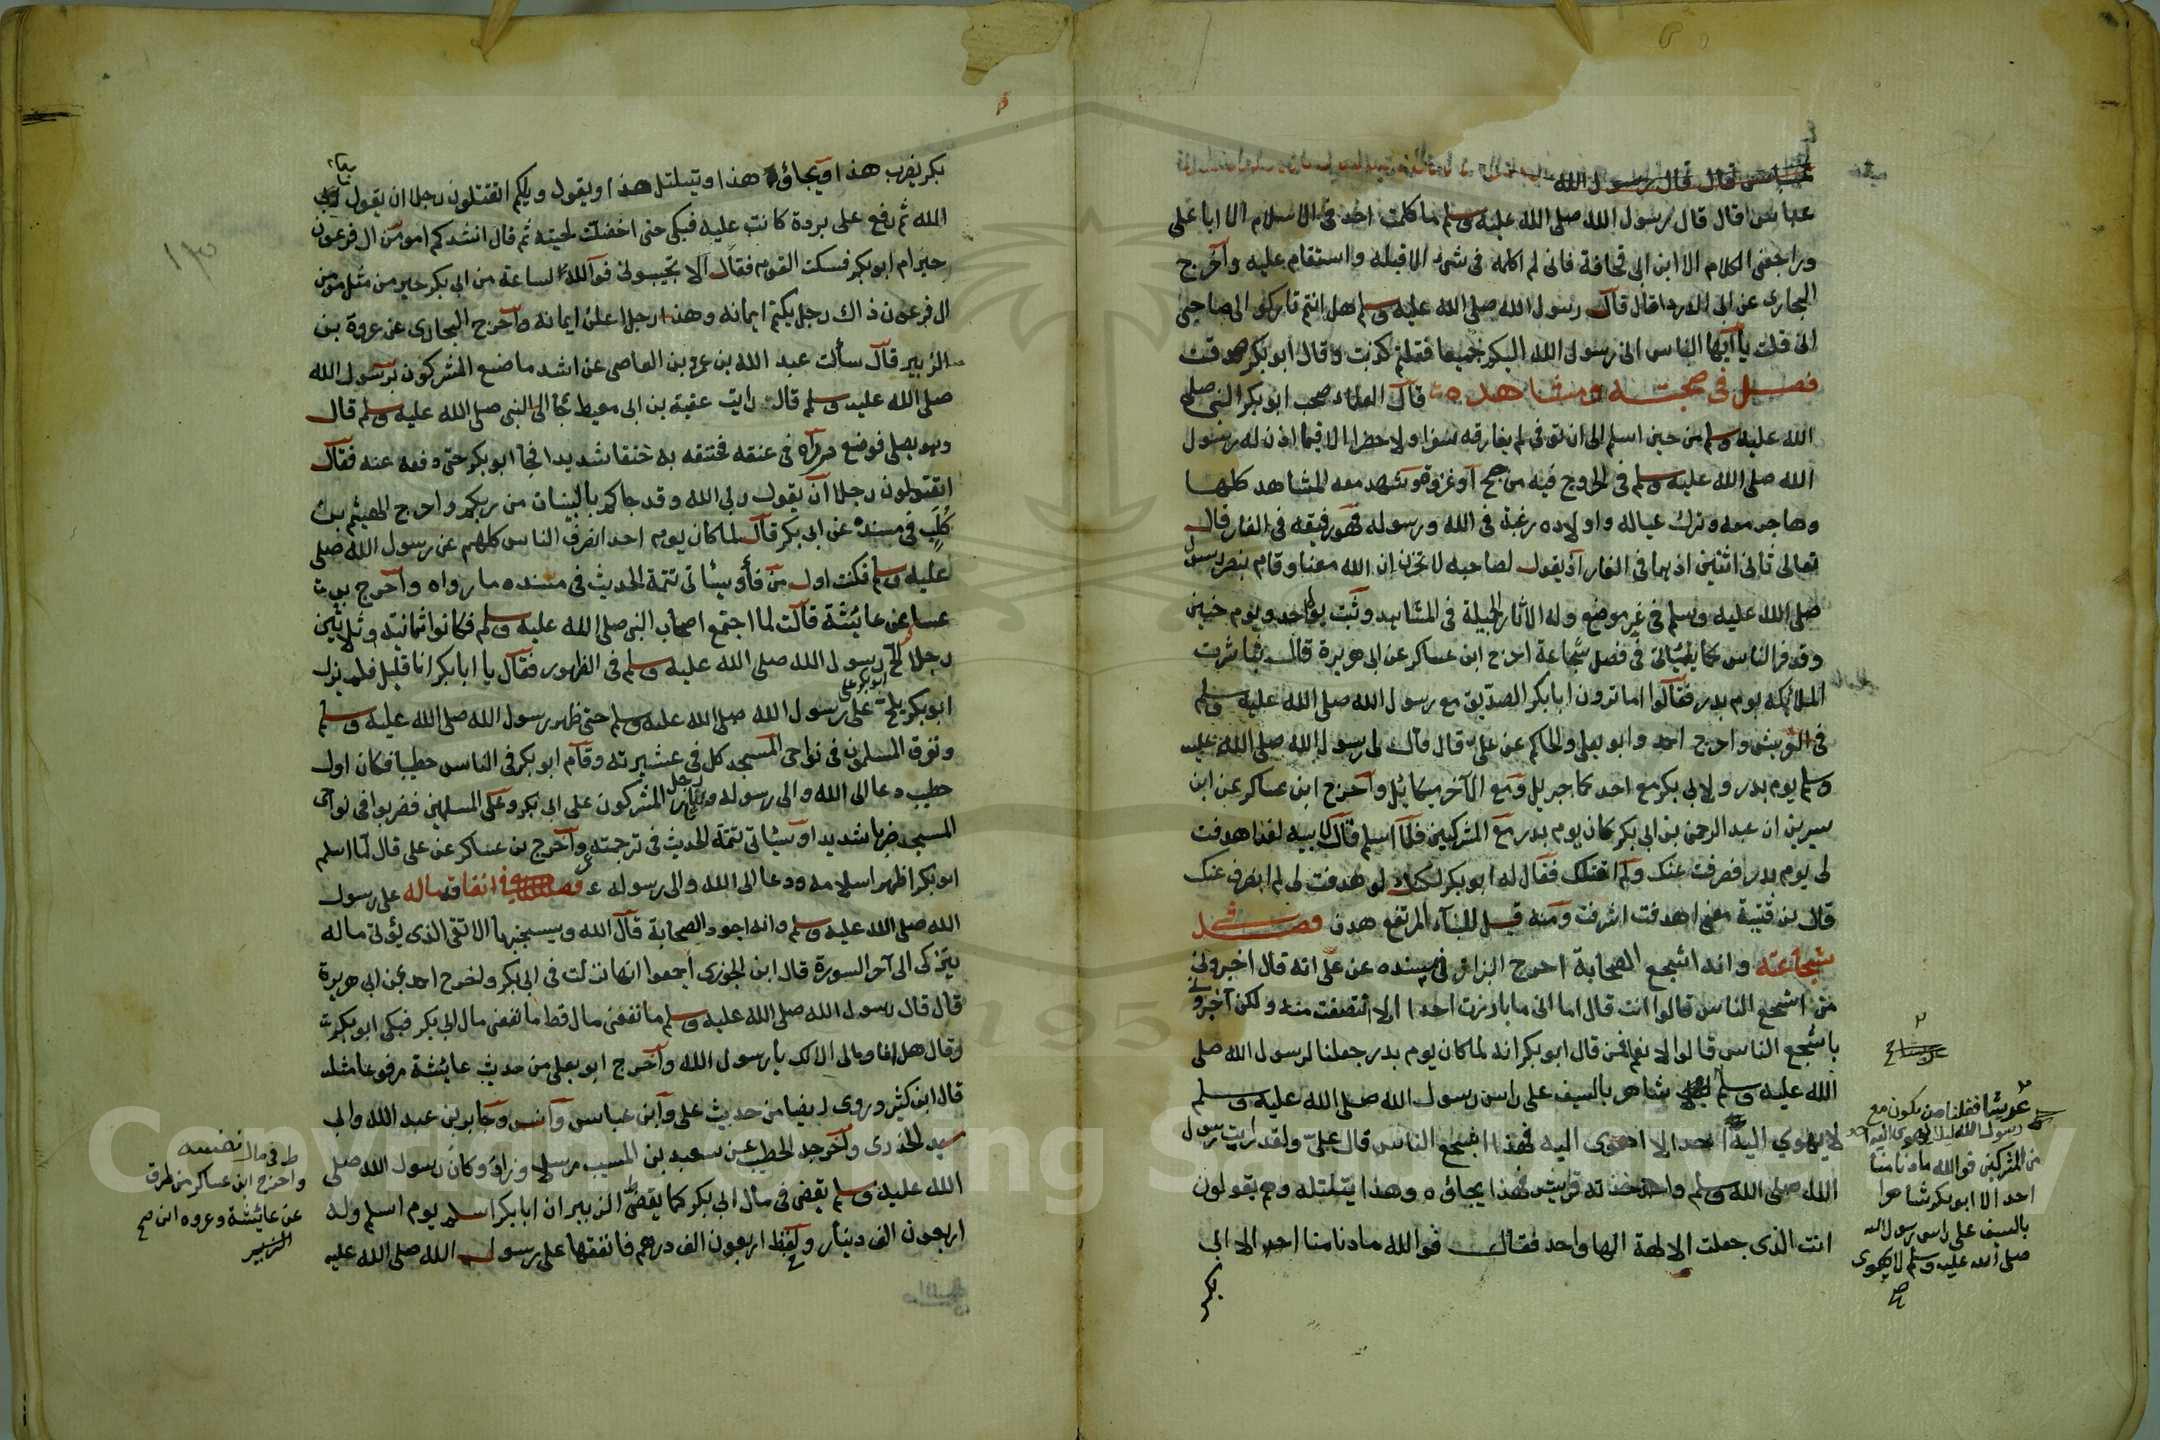 عباس قال قال رسول الله
عباس قال قال رسول الله صلى الله عليه وسلم ما كلمت احد فى الاسلام الا ابا على
وراجعنى الكلام الا ابن ابى قحافة فانى لم اكلمه فى شئ الا قبله واستقام عليه وآخرج
البخارى عن ابى الدرداء قال قال رسول الله صلى الله عليه وسلم هل انتم تاركوا لى صاحبى
انى قلت يا ايها الناس انى رسول الله اليكم جميعا فقلتم كذبت وقال ابو بكر صدقت
فصل فى صحبته ومشاهده قال العلماء صحب ابو بكر النبى صلى
الله عليه وسلم من حين اسلم الى ان توفى لم يفارقه سفرا ولا حضرا الا فيما اذن له رسول
الله صلى الله عليه وسلم فى الخروج فيه من حج او غزوة وشهد معه المشاهد كلها
وهاجر معه وترك عياله واولاده رغبة فى الله ورسوله فهو رفيقه فى الغار قال
تعالى ثانى اثنين اذ هما فى الغار اذ يقول لصاحبه لا تحزن ان الله معنا وقام بنصر رسول
صلى الله عليه وسلم فى غير موضع وله الاثار الجميلة فى المشاهد وثبت يوم احد ويوم حنين
وقد فر الناس كما سيأتى فى فصل شجاعة اخرج ابن عساكر عن ابى هريرة قال تباشرت
الملائكة يوم بدر فقالوا اما ترون ابا بكر الصديق مع رسول الله صلى الله عليه وسلم
فى العريش واخرج احمد وابو يعلى والحاكم عن على قال قال لى رسول الله صلى الله عليه
وسلم يوم بدر ولابى بكر مع احدكما جبريل ومع الآخر ميكائيل وآخرج ابن عساكر عن ابن
سيرين ان عبد الرحمن بن ابى بكر كان يوم بدر مع المشركين فلما اسلم قال لابيه لقد اهدفت
لى يوم بدر فصرفت عنك ولم اقتلك فقال له ابو بكر لكنك لو هدفت لى لم انصرف عنك
قال بن قتيبة معنى اهدفت اشرفت ومنه قيل للبناء المرتفع هدف فصل فى
شجاعته وانه اشجع الصحابة اخرج البزار فى مسنده عن على انه قال اخبرونى
من اشجع الناس قالوا انت قال اما انى ما بارزت احدا الا انتصفت منه ولكن آخبرونى
باشجع الناس قالوا لا نعلم فمن قال ابو بكر انه لما كان يوم بدر جعلنا لرسول الله صلى
الله عليه وسلم شاهر بالسيف على راس رسول الله صلى الله عليه وسلم
لا يهوى اليه احد الا اهوى اليه فهذا اشجع الناس قال على ولقد رايت رسول
الله صلى الله وسلم واخذته قريش فهذا يجاؤه وهذا يتلتله وهم يقولون
انت الذى جعلت الالهة الها واحد فقال فوالله ما دنا منا احد الا ابى
بكر
عريشا فقلنا من يكون مع
رسول الله لئلا يهوى اليه احد
من المشركين فوالله ما دنا منا
احد الا ابو بكر شاهرا
بالسيف على راس رسول الله
صلى الله عليه وسلم لا يهوى
صح
بكر يضرب هذا ويجاؤ هذا ويتلتل هذا ويقول ويلكم اتقتلون رجلا ان يقول ربى
الله ثم رفع على بردة كانت عليه فبكى حتى اخضلت لحيته ثم قال انشدكم امومن ال فرعون
خير ام ابو بكر فسكت القوم فقال الا تجيبونى فوالله لساعة من ابى بكر خير من مثل مومن
ال فرعون ذاك رجل يكتم ايمانه وهذا رجل اعلن ايمانه وآخرج البخارى عن عروة بن
الزبير قال سألت عبد الله بن عمرو بن العاصى عن اشد ما صنع المشركون برسول الله
صلى الله عليه وسلم قال رايت عقبة بن ابى معيط جا الى النبى صلى الله عليه وسلم قال
وهو يصلى فوضع رداه فى عنقه فخنقه به خنقا شديدا فجا ابو بكر حتى دفعه عنه فقال
اتقتلون رجلا ان يقول ربى الله وقد جاكم بالبينات من ربكم واخرج الهيثم بن
كليب فى مسنده عن ابى بكر قال لما كان يوم احد انصرف الناس كلهم عن رسول الله صلى
عليه وسلم فكنت اول من فأ وسيأتى تتمة الحديث فى مسنده ما رواه وآخرج بن
عسا عن عائشة قالت لما اجتمع اصحاب النبى صلى الله عليه وسلم فكانوا ثمانية وثلاثين
رجلا الح رسول الله صلى الله عليه وسلم فى الظهور فقال يا ابا بكر انا قليل فلم يزل
ابو بكر يلح على رسول الله صلى الله عليه وسلم حتى ظهر رسول الله صلى الله عليه وسلم
وتفرق المسلمون فى نواحى المسجد كل فى عشيرته وقام ابو بكر فى الناس خطيبا فكان اول
خطيب دعا الى الله والى رسوله وثار المشركون على ابى بكر وعلى المسلمين فضربوا فى نواحى
المسجد ضربا شديدا وسيأتى تتمة الحديث فى ترجمته وآخرج بن عساكر عن على قال لما اسلم
ابو بكر اظهر اسلامه ودعا الى الله والى رسوله فصل فى انفاقه ماله على رسول
الله صلى الله عليه وسلم وانه اجود الصحابة قال الله وسيجنبها الاتقى الذى يؤتى ماله
يتزكى الى آخر السورة قال ابن الجوزى أجمعوا انها نزلت فى ابى بكر واخرج احمد عن ابى هريرة
قال قال رسول الله صلى الله عليه وسلم ما نفعنى مال قط ما نفعنى مال ابى بكر فبكى ابو بكر
وقال هل انا ومالى الا لك يا رسول الله وآخرج ابو يعلى من حديث عائشة مرفوعا مثله
قال ابن كثير وروى ايضا من حديث على وابن عباس وآنس وجابر بن عبد الله وابى
سعيد الخدرى وآخرجه الخطيب عن سعيد بن المسيب مرسلا وزاد وكان رسول الله صلى
الله عليه وسلم يقضى فى مال ابى بكر كما يقضى الزبير ان ابا بكر اسلم يوم اسلم وله
اربعون الف دينار وفى لفظ اربعون الف درهم فانفقها على رسول الله صلى الله عليه
ط فى مال نفسه
واخرج ابن عساكر من طرق
عن عائشة وعروه ابن صح
الزبير